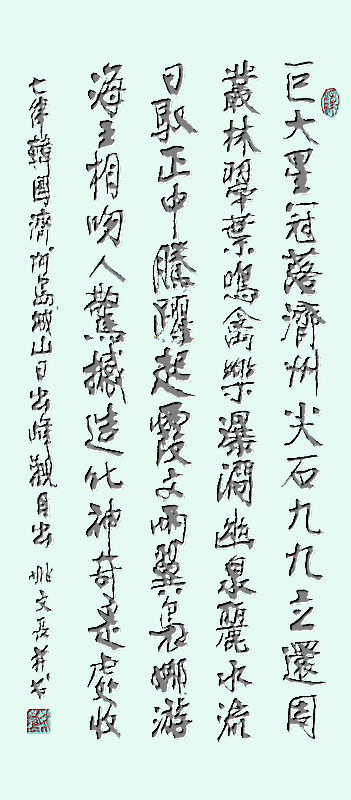 巨大星冠落濟州尖石九九立還周
叢林翠葉鳴禽樂瀑澗幽泉麗水流
日馭正中騰躍起霞文兩翼裊娜游
海王相吻人驚撼造化神奇是處收
七律韓國濟州島城山日出峰觀日出 姚文長并書